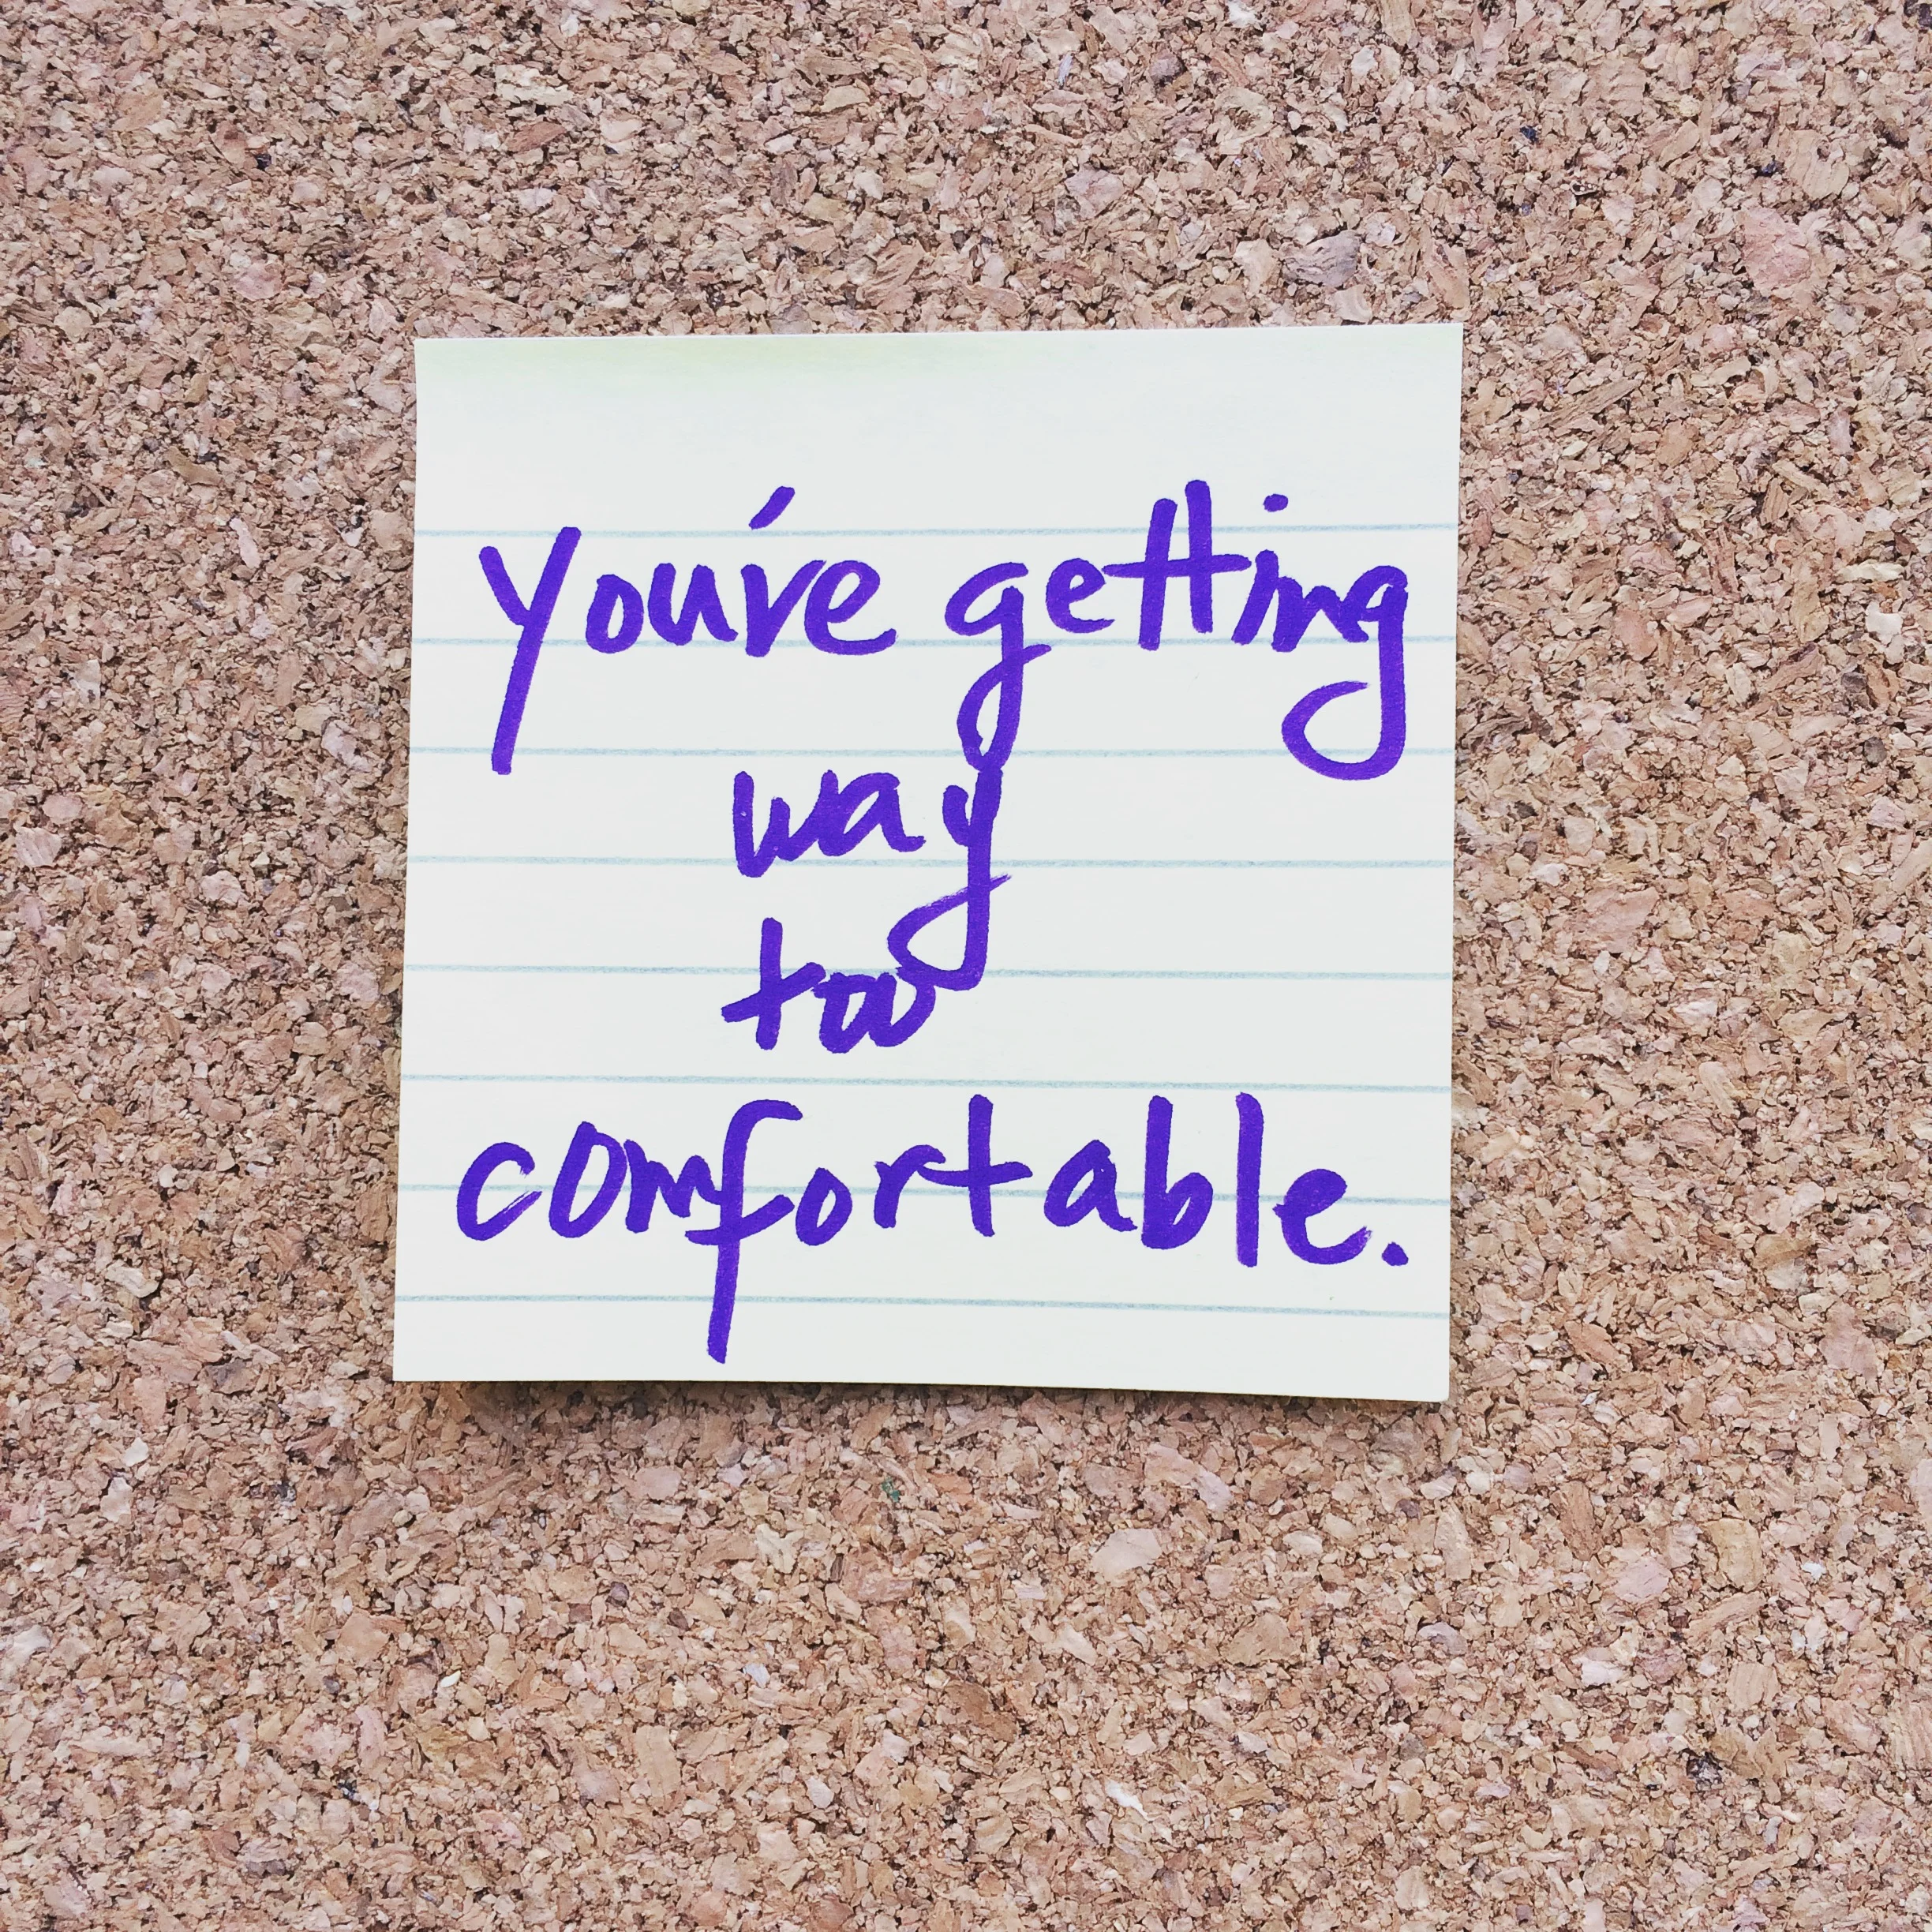 you've getting
way
too
comfortable.